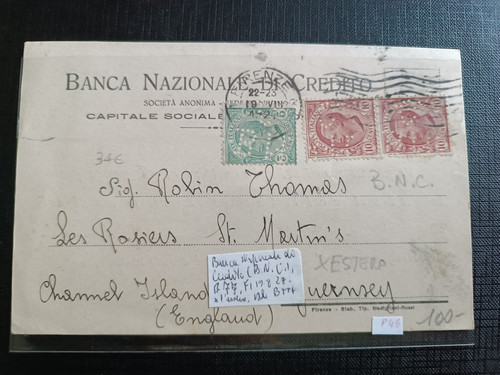 BANCA NAZIONALE DI CREDITO
SOCIETÀ ANONIMA
CAPITALE SOCIALE
FIRENZE
22-23
34€
Sig. Robin Thomas
B.N.C.
Les Rosiers St. Martin's
Banca Nazionale di
Credito (B.N.C.),
XESTERO
Channel Island
Guernsey
(England)
Firenze - Stab. Tip.
P46
100-